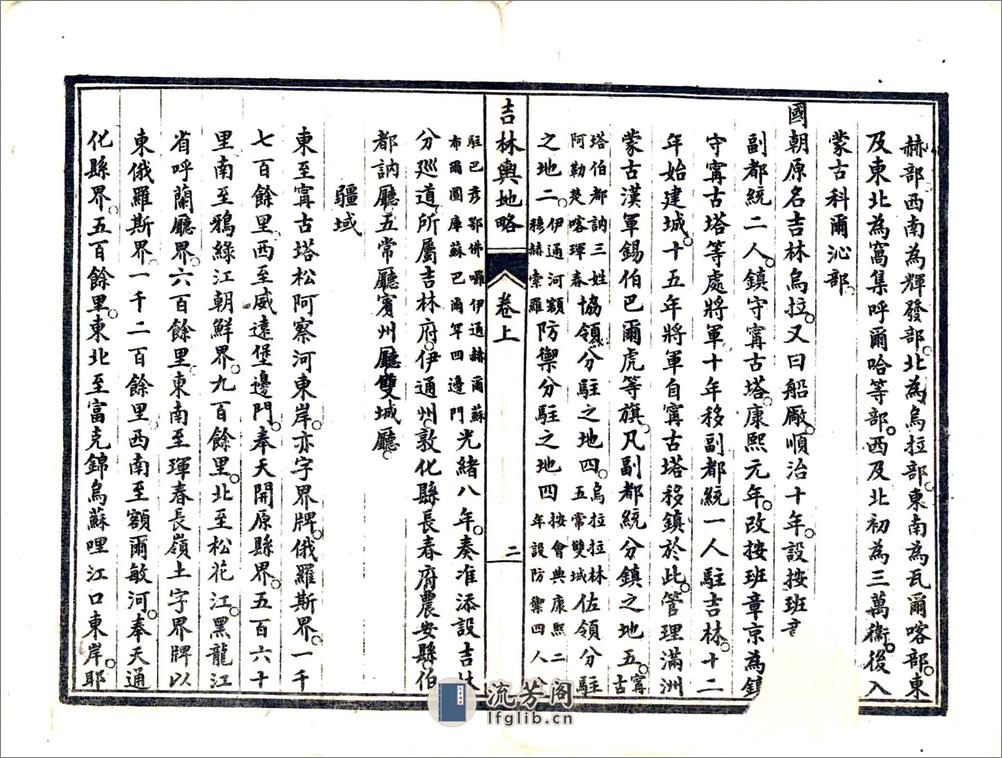 赫部西南為輝發部北為烏拉部東南為瓦爾喀部東
及東北為窩集呼爾哈等部西及北初為三萬衛後入
蒙古科爾沁部
國朝原名吉林烏拉又曰船廠順治十年設按班
副都統二人鎮守寧古塔康熙元年改按班章京為鎮
守寧古塔等處將軍十年移副都統一人駐吉林十二
年始建城十五年將軍自寧古塔移鎮於此管理滿洲
蒙古漢軍錫伯巴爾虎等旗凡副都統分鎮之地五寧古
塔伯都訥三姓阿勒楚喀琿春協領分駐之地四烏拉拉林五常雙城佐領分駐
之地二伊通河額穆赫索羅防禦分駐之地四按會典康熙二年設防禦四人分
吉林輿地略
卷上
二
駐巴彥鄂佛囉伊通赫爾蘇布爾圖庫蘇巴爾罕四邊門光緒八年奏准添設吉林
分巡道所屬吉林府伊通州敦化縣長春府農安縣伯
都訥廳五常廳賓州廳雙城廳
疆域
東至寧古塔松阿察河東岸亦字界牌俄羅斯界一千
七百餘里西至威遠堡邊門奉天開原縣界五百六十
里南至鴨綠江朝鮮界九百餘里北至松花江黑龍江
省呼蘭廳界六百餘里東南至琿春長嶺土字界牌以
東俄羅斯界一千二百餘里西南至額爾敏河奉天通
化縣界五百餘里東北至富克錦烏蘇哩江口東岸耶
流芳阁
lfglib.cn